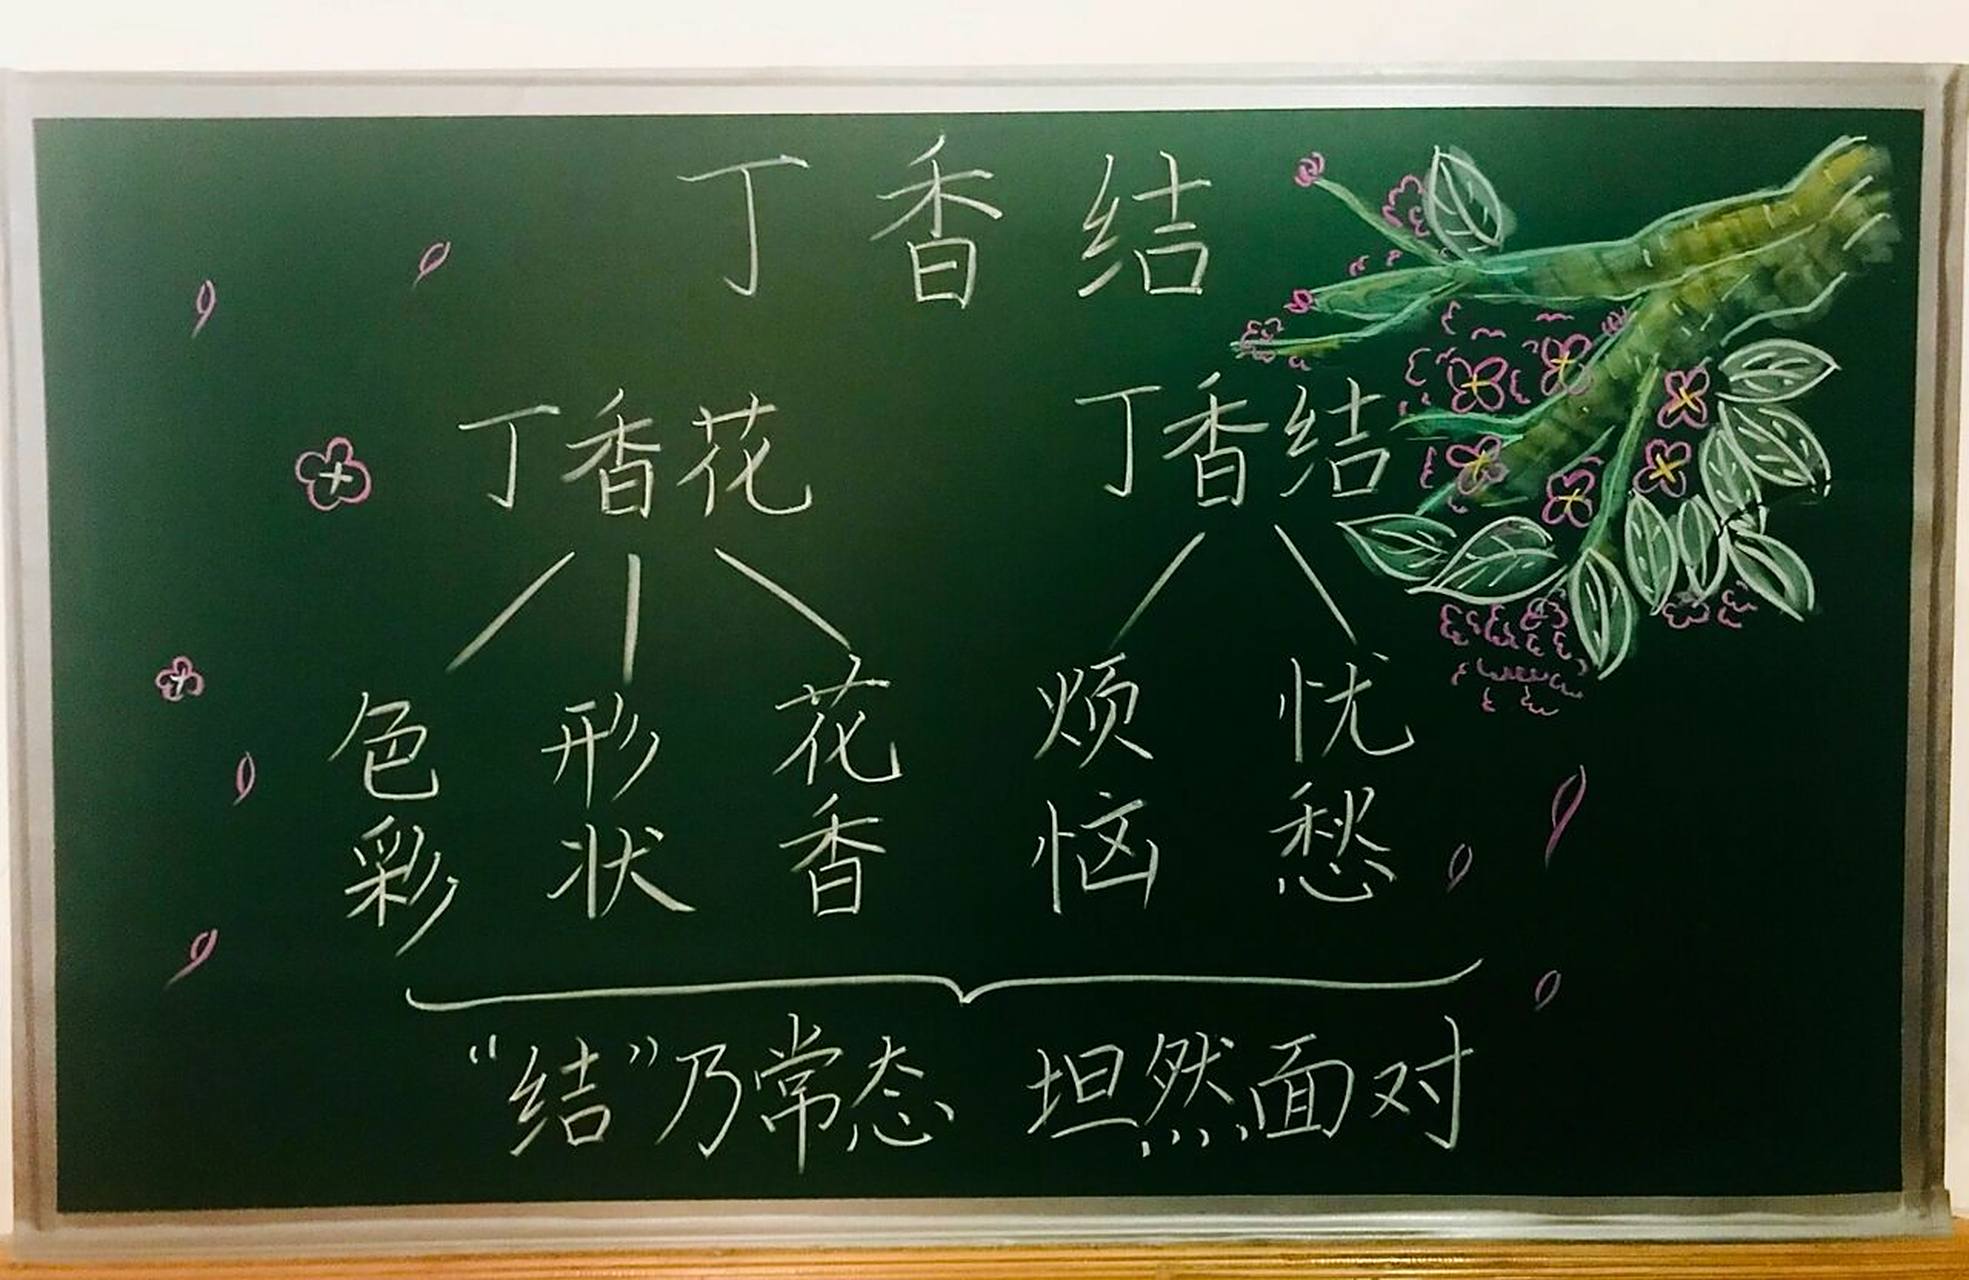 丁香结
丁香花 丁香结
色彩 形状 花香 烦恼 忧愁
“结”乃常态 坦然面对